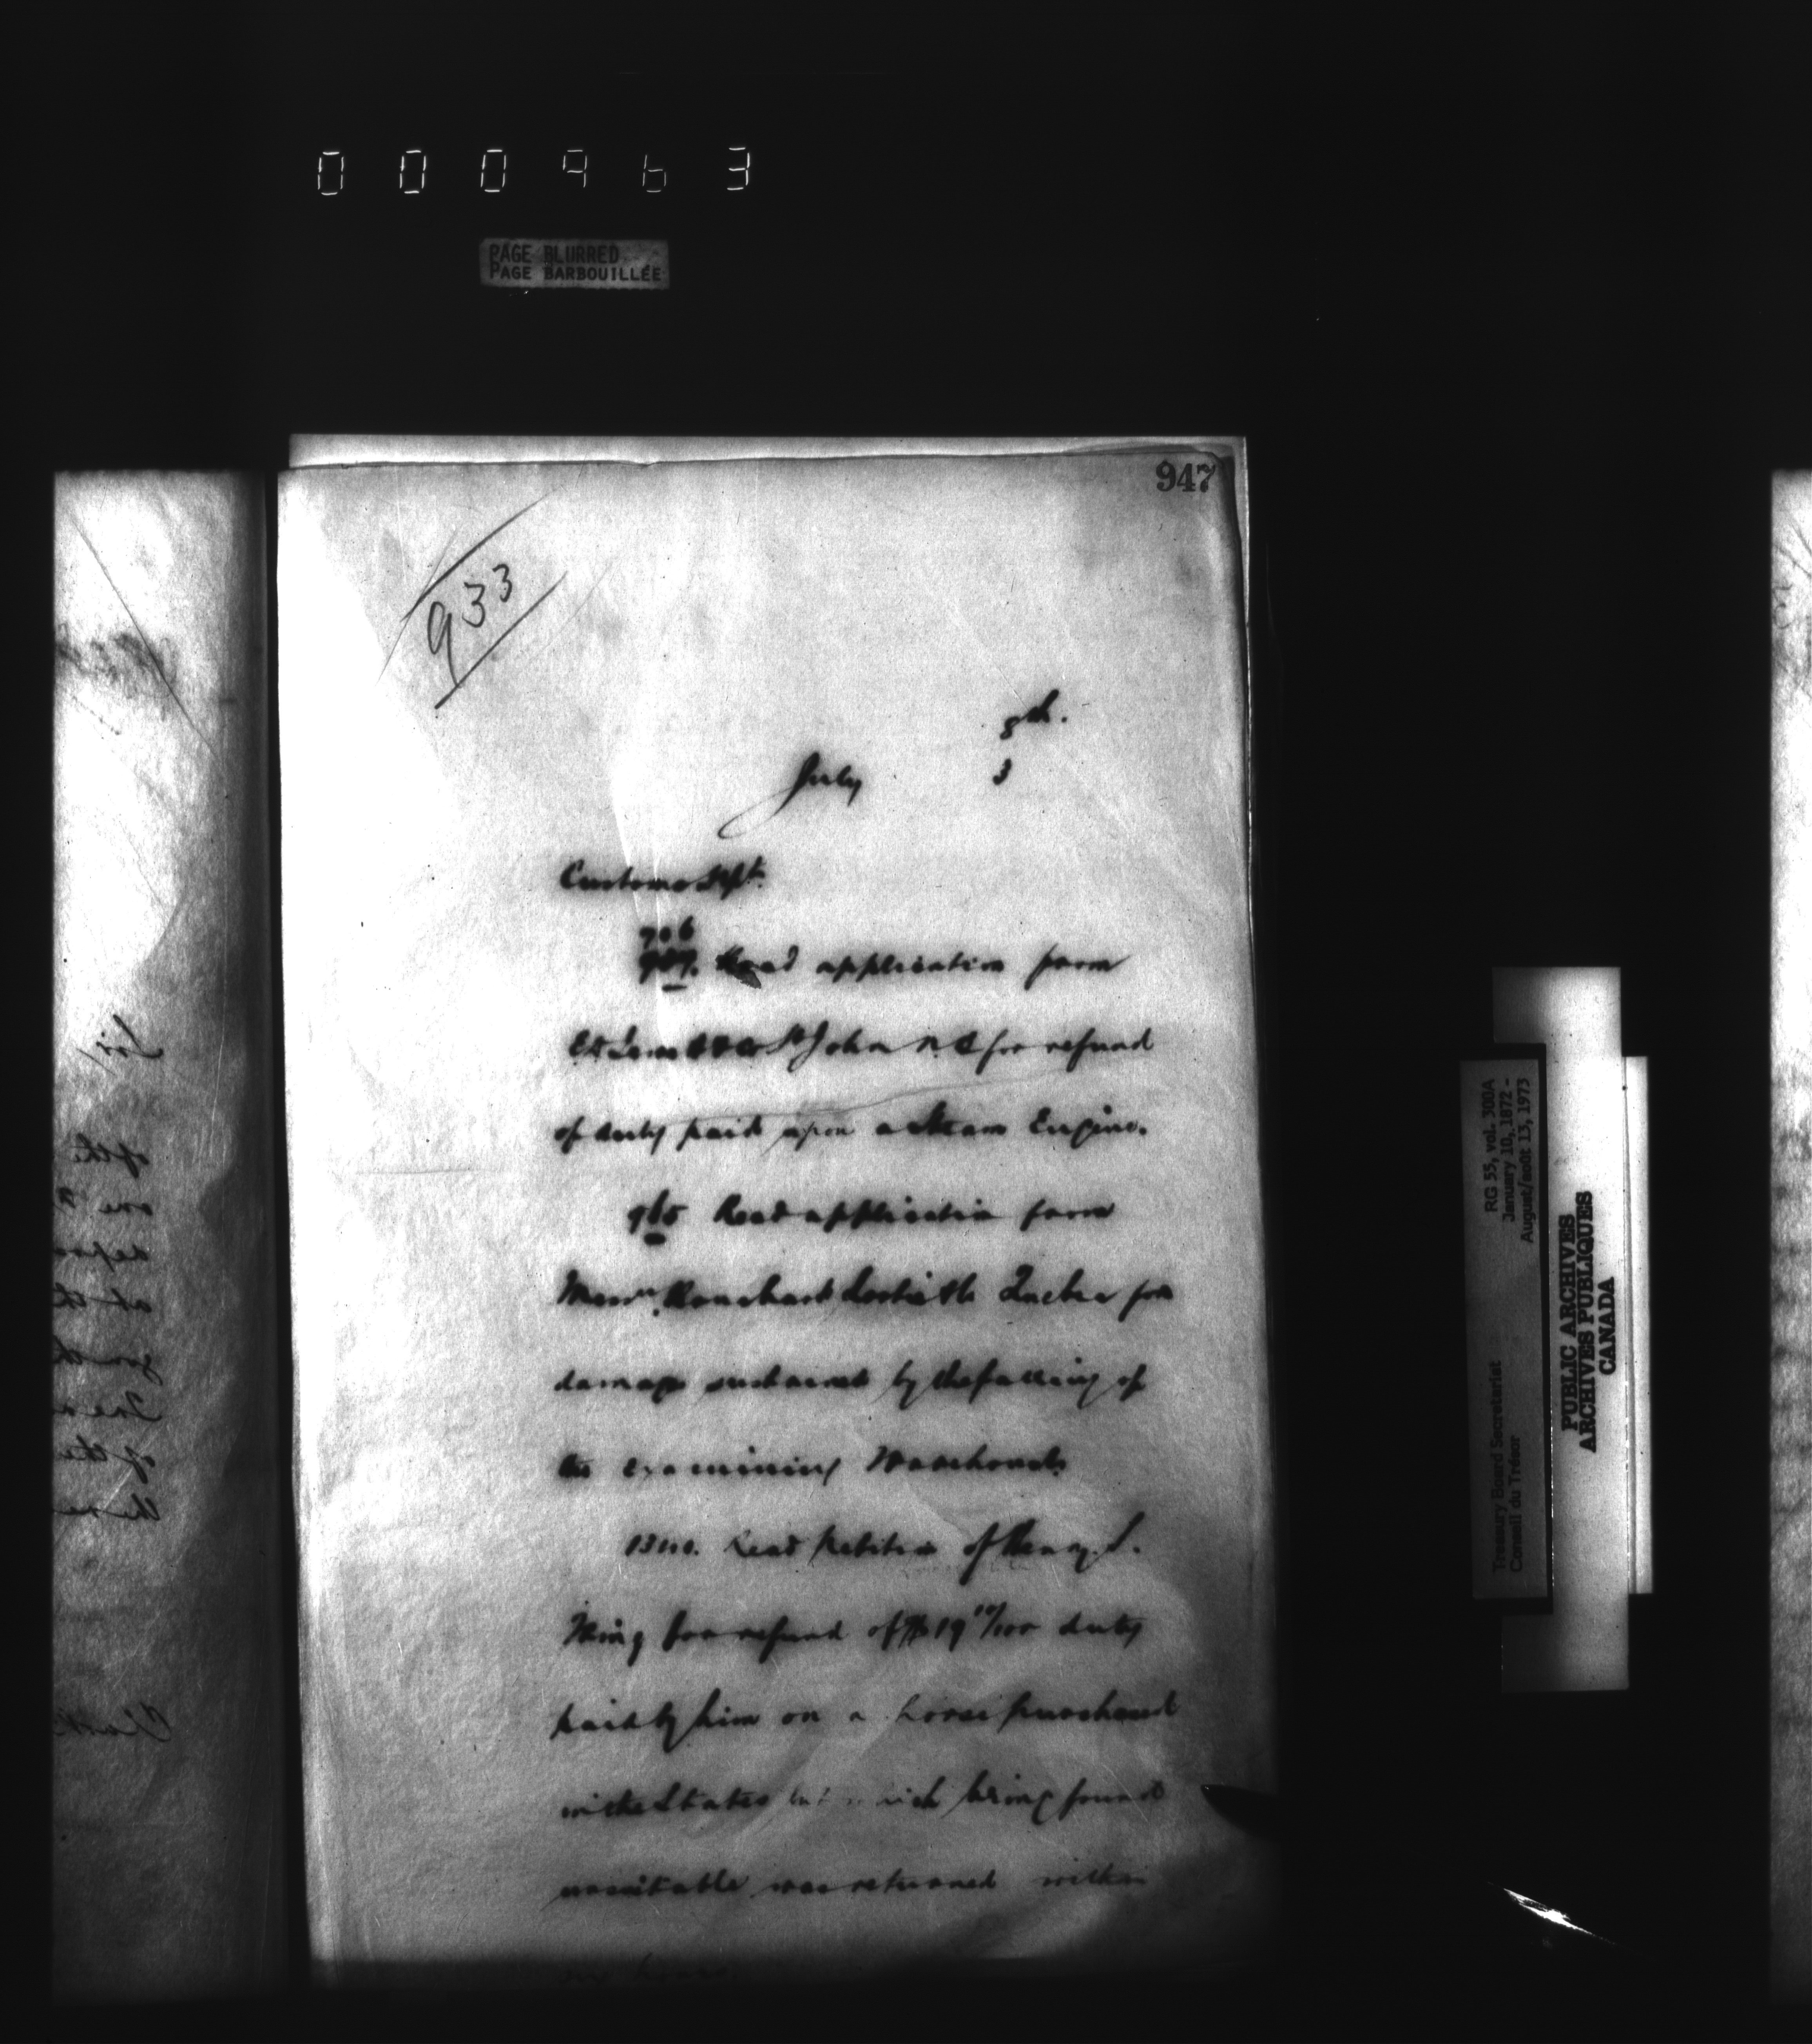 000963
PAGE BLURRED
PAGE BARBOUILLÉE
947
933
8th.
July 3
Customs Dept.
906
Read application from
St John N B for refund
of duty paid upon a Steam Engine.
965 Read application from
Messrs for
damage sustained by the falling of
the examining Warehouse
1310. Read petition of Henry S.
King for refund of $19 10/100 duty
paid by him on a horse purchased
in the States but which being found
unsuitable was returned within
hours
Sir/
of the
one
at the
for the
of the
RG 55, vol. 300A
January 10, 1872 -
August/août 13, 1973
Treasury Board Secretariat
Conseil du Trésor
PUBLIC ARCHIVES
ARCHIVES PUBLIQUES
CANADA